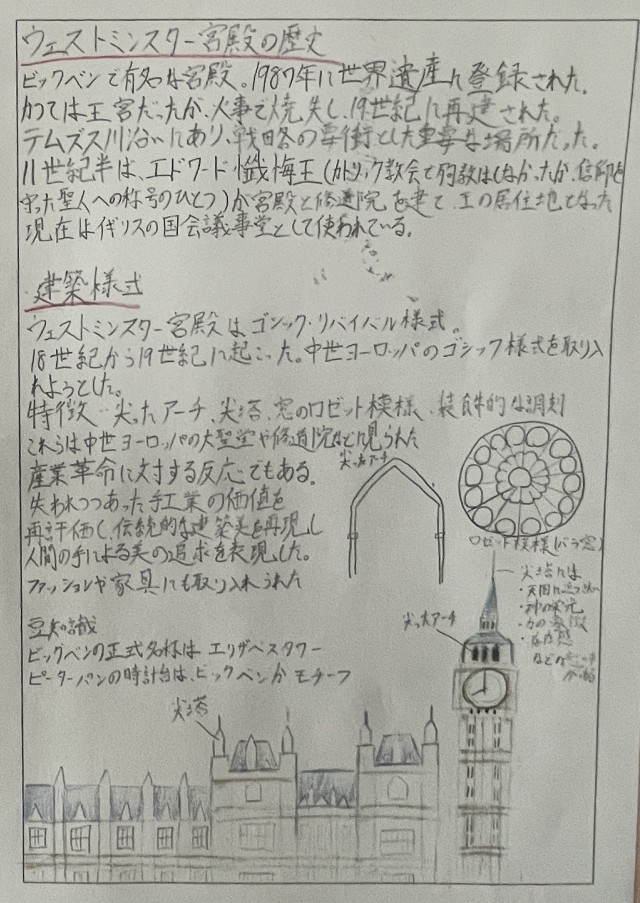 ウェストミンスター宮殿の歴史
ビックベンで有名な宮殿。1987年に世界遺産に登録された。
かつては王宮だったが、火事で焼失し、19世紀に再建された。
テムズス川沿いにあり、戦略の要衝とした重要な場所だった。
11世紀半は、エドワード懺悔王(カトリック教会で殉教はしなかったが、信仰を
守った聖人への称号のひとつ)が宮殿と修道院を建て、王の居住地となった
現在はイギリスの国会議事堂として使われている。
建築様式
ウェストミンスター宮殿はゴシック・リバイバル様式。
18世紀から19世紀に起こった。中世ヨーロッパのゴシック様式を取り入
れようとした。
特徴 尖ったアーチ、尖塔、窓のロゼット模様、装飾的な調刻
これらは中世ヨーロッパの大聖堂や修道院などに見られた
尖ったアーチ
産業革命に対する反応でもある。
失われつつあった手工業の価値を
再評価し、伝統的な建築美を再現し
人間の手による美の追求を表現した。
ファッションや家具にも取り入れられた
ロゼット模様(バラ窓)
尖塔には
・天国に近づきたい
・神の栄光
・力の象徴
・存在感
などの
豆知識
ビッグベンの正式名称は エリザベスタワー
ピーターパンの時計台は、ビックベンがモチーフ
尖ったアーチ
尖塔